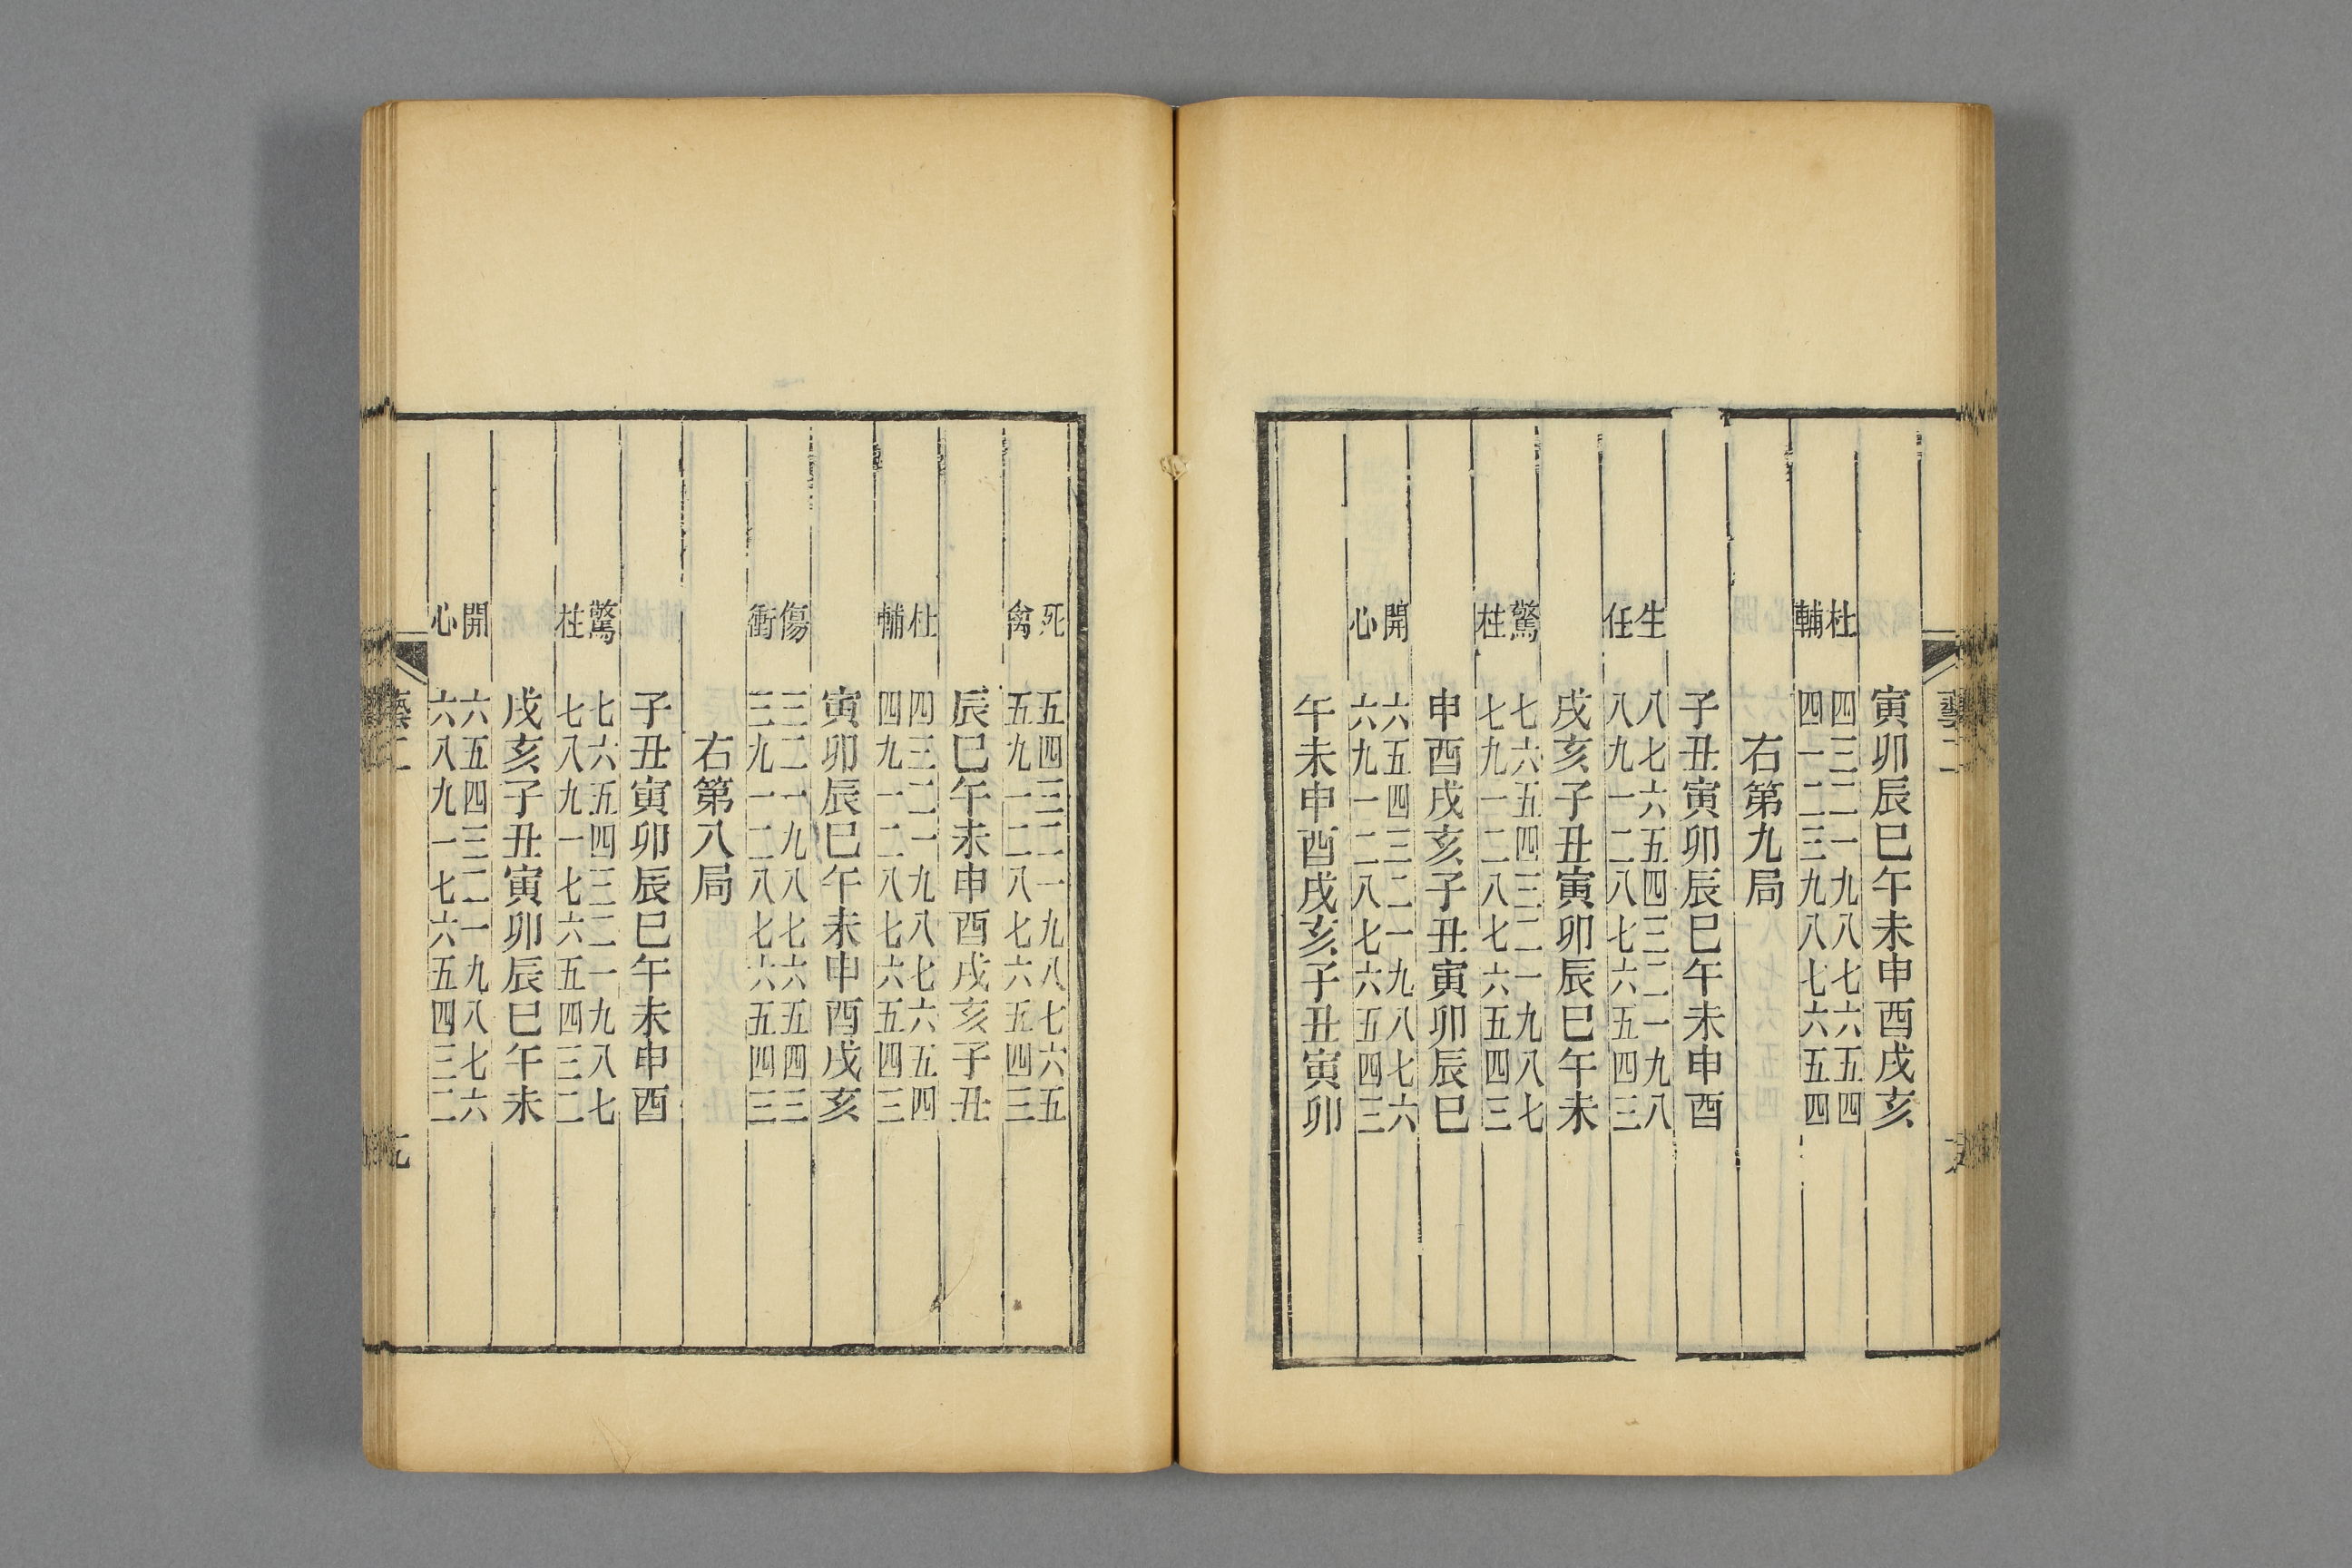 藝二
寅卯辰巳午未申酉戌亥
杜 四三二一九八七六五四
輔 四一二三九八七六五四
右第九局
子丑寅卯辰巳午未申酉
生 八七六五四三二一九八
任 八九一二八七六五四三
戌亥子丑寅卯辰巳午未
驚 七六五四三二一九八七
柱 七九一二八七六五四三
申酉戌亥子丑寅卯辰巳
開 六五四三二一九八七六
心 六九一二八七六五四三
午未申酉戌亥子丑寅卯
死 五四三二一九八七六五
禽 五九一二八七六五四三
辰巳午未申酉戌亥子丑
杜 四三二一九八七六五四
輔 四九一二八七六五四三
寅卯辰巳午未申酉戌亥
傷 三二一九八七六五四三
衝 三九一二八七六五四三
右第八局
子丑寅卯辰巳午未申酉
驚 七六五四三二一九八七
柱 七八九一七六五四三二
戌亥子丑寅卯辰巳午未
開 六五四三二一九八七六
心 六八九一七六五四三二
藝二